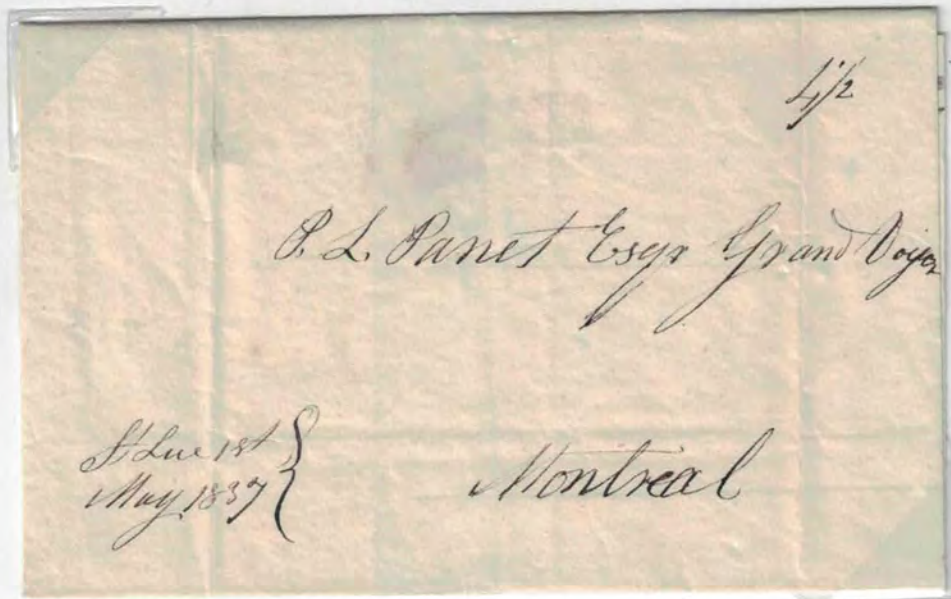 4½
P. L. Panet Esqr Grand Voyer
St Luc 1st
May 1837
Montreal